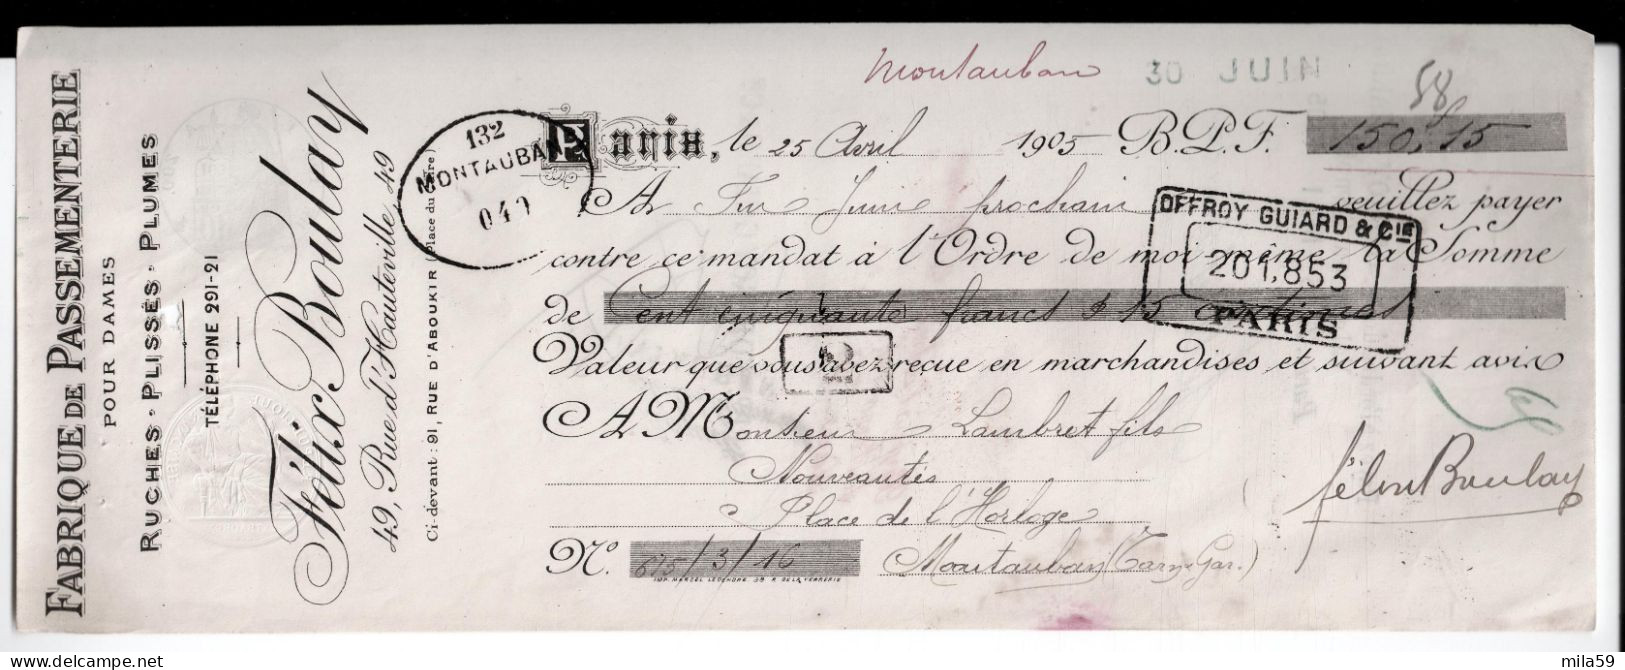 FABRIQUE DE PASSEMENTERIE
POUR DAMES
RUCHES · PLISSÉS · PLUMES
TÉLÉPHONE 291-21
Félix Boulay
49, Rue d'Hauteville 49
Ci-devant : 91, RUE D'ABOUKIR (Place du Caire)
132
MONTAUBAN
040
Montauban 30 JUIN
58
Paris, le 25 Avril 1905 B.P.F. 150,15
A Fin Juin prochain veuillez payer
contre ce mandat à l'Ordre de moi-même la Somme
de Cent cinquante francs & 15 centimes
Valeur que vous avez reçue en marchandises et suivant avis
OFFROY GUIARD & CIE
201,853
PARIS
A M Monsieur Lambret fils
Nouveautés
Place de l'Horloge
No. 615/3/16 Montauban (Tarn & Gar.)
IMP. MARCEL LEGENDRE 38 R. DE LA VERRERIE
Félix Boulay
mila59